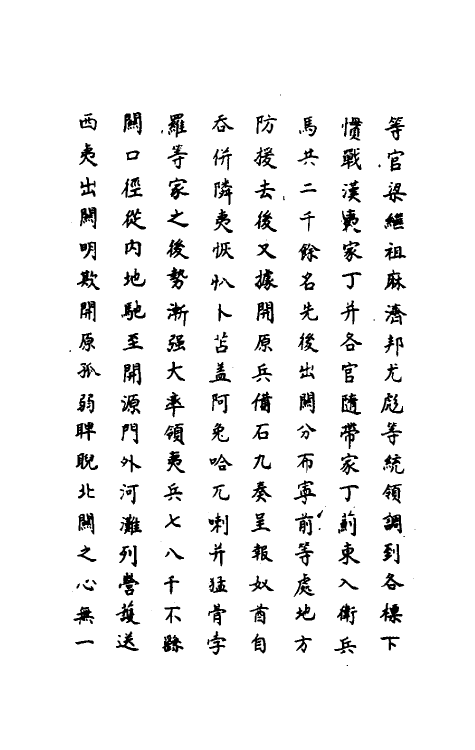 等官梁繼祖麻濟邦尤彪等統領調到各標下
慣戰漢夷家丁并各官隨帶家丁薊東入衛兵
馬共二千餘名先後出關分布寧前等處地方
防援去後又據開原兵備石九奏呈報奴酋自
吞併隣夷恢扒卜苫盖阿兎哈兀喇并猛骨孛
羅等家之後勢漸强大率領夷兵七八千不繇
關口徑從内地馳至開源門外河灘列營護送
西夷出關明欺開原孤弱睥睨北關之心無一